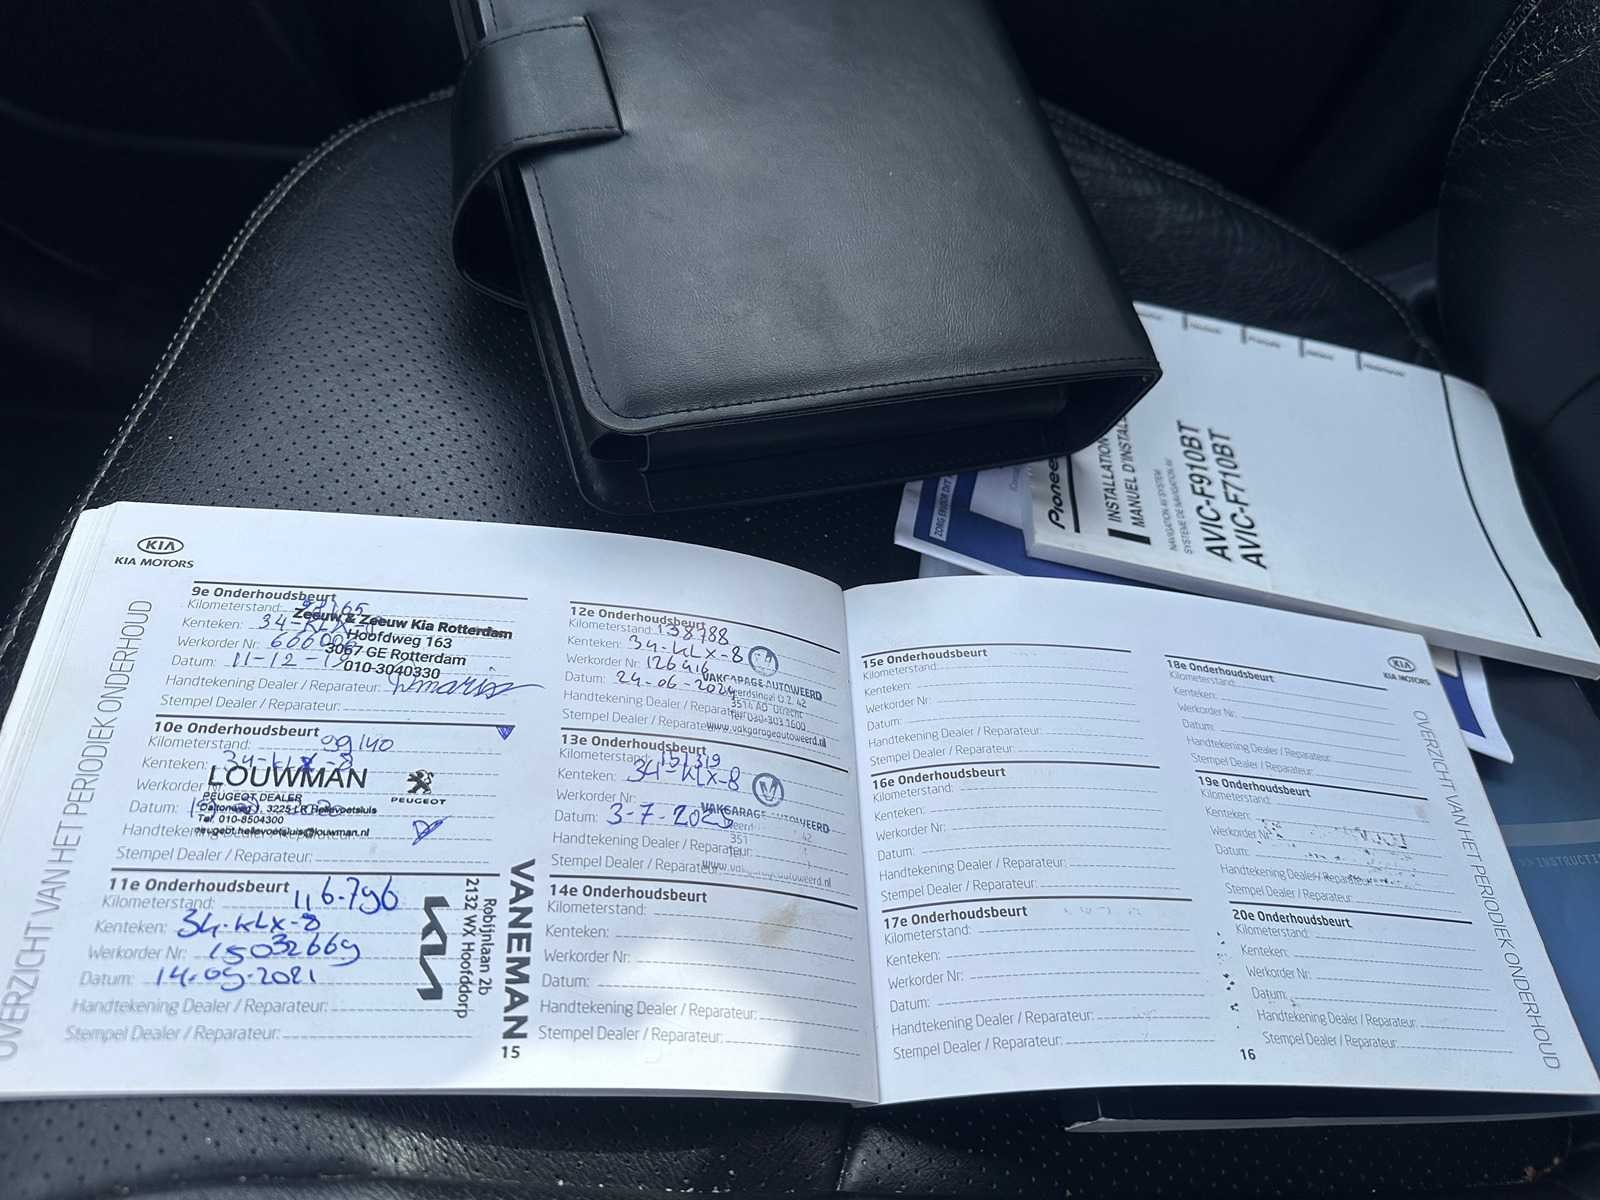 KIA
KIA MOTORS
OVERZICHT VAN HET PERIODIEK ONDERHOUD
9e Onderhoudsbeurt
Kilometerstand:
Kenteken: 34-KLX-8
Werkorder Nr:
Datum: 11-12-19
Handtekening Dealer / Reparateur:
Stempel Dealer / Reparateur:
Zeeuw & Zeeuw Kia Rotterdam
Hoofdweg 163
3067 GE Rotterdam
010-3040330
10e Onderhoudsbeurt
Kilometerstand: 99140
Kenteken: 34-KLX-8
Werkorder
Datum:
Handtekening Dealer / Reparateur:
Stempel Dealer / Reparateur:
LOUWMAN
PEUGEOT DEALER
Daltonweg 3225 LR Hellevoetsluis
Tel. 010-8504300
peugeot.hellevoetsluis@louwman.nl
PEUGEOT
11e Onderhoudsbeurt
Kilometerstand: 116.796
Kenteken: 34-KLX-8
Werkorder Nr: 15032669
Datum: 14-05-2021
Handtekening Dealer / Reparateur:
Stempel Dealer / Reparateur:
VANEMAN
Robijnlaan 2b
2132 WX Hoofddorp
KIA
15
12e Onderhoudsbeurt
Kilometerstand: 138788
Kenteken: 34-KLX-8
Werkorder Nr: 126416
Datum: 24-06-2024
Handtekening Dealer / Reparateur:
Stempel Dealer / Reparateur:
VAKGARAGE AUTOWEERD
Weerdsingel O.Z. 42
3514 AD Utrecht
Tel 030-303 1600
www.vakgarageautoweerd.nl
13e Onderhoudsbeurt
Kilometerstand: 151319
Kenteken: 34-KLX-8
Werkorder Nr:
Datum: 3-7-2025
Handtekening Dealer / Reparateur:
Stempel Dealer / Reparateur:
VAKGARAGE AUTOWEERD
42
351
www.vakgarageautoweerd.nl
14e Onderhoudsbeurt
Kilometerstand:
Kenteken:
Werkorder Nr:
Datum:
Handtekening Dealer / Reparateur:
Stempel Dealer / Reparateur:
15e Onderhoudsbeurt
Kilometerstand:
Kenteken:
Werkorder Nr:
Datum:
Handtekening Dealer / Reparateur:
Stempel Dealer / Reparateur:
16e Onderhoudsbeurt
Kilometerstand:
Kenteken:
Werkorder Nr:
Datum:
Handtekening Dealer / Reparateur:
Stempel Dealer / Reparateur:
17e Onderhoudsbeurt
Kilometerstand:
Kenteken:
Werkorder Nr:
Datum:
Handtekening Dealer / Reparateur:
Stempel Dealer / Reparateur:
16
18e Onderhoudsbeurt
Kilometerstand:
Kenteken:
Werkorder Nr:
Datum:
Handtekening Dealer / Reparateur:
Stempel Dealer / Reparateur:
19e Onderhoudsbeurt
Kilometerstand:
Kenteken:
Werkorder Nr:
Datum:
Handtekening Dealer / Reparateur:
Stempel Dealer / Reparateur:
20e Onderhoudsbeurt
Kilometerstand:
Kenteken:
Werkorder Nr:
Datum:
Handtekening Dealer / Reparateur:
Stempel Dealer / Reparateur:
KIA
KIA MOTORS
OVERZICHT VAN HET PERIODIEK ONDERHOUD
Pioneer
INSTALLATION
MANUEL D'INSTAL
NAVIGATION AV SYSTEM
SYSTEME DE NAVIGATION AV
AVIC-F910BT
AVIC-F710BT
>> INSTRUCTI